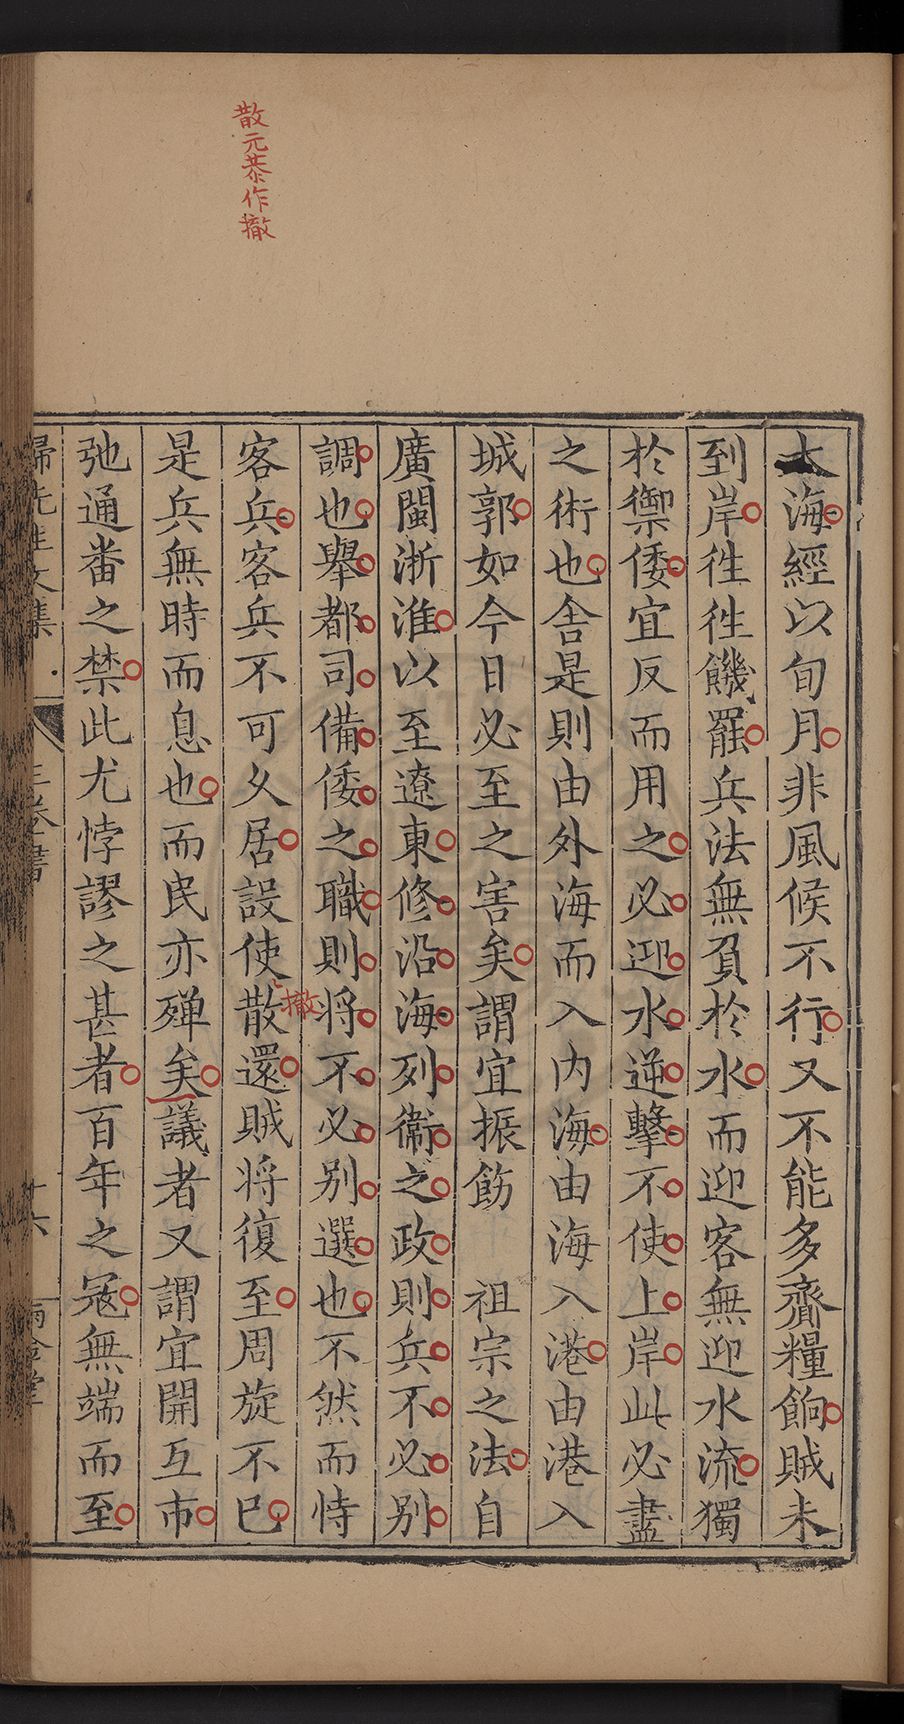 散元恭作撤
大海經以旬月非風候不行又不能多齎糧餉賊未
到岸徃徃饑罷兵法無負於水而迎客無迎水流獨
於禦倭宜反而用之必迎水逆擊不使上岸此必盡
之術也舍是則由外海而入内海由海入港由港入
城郭如今日必至之害矣謂宜振飭 祖宗之法自
廣閩浙淮以至遼東修沿海列衞之政則兵不必别
調也舉都司備倭之職則将不必别選也不然而恃
客兵客兵不可乆居設使散還賊将復至周旋不已
撤
是兵無時而息也而民亦殫矣議者又謂宜開互市
弛通畨之禁此尤悖謬之甚者百年之冦無端而至
歸先生文集 三卷書 十六